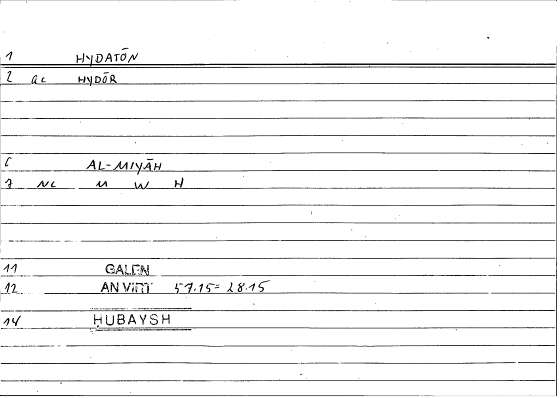 1 HYDATŌN
2 ac HYDŌR
6 AL-MIYĀH
7 NC M W H
11 GALEN
12 AN VIRT 57.15= 28.15
14 ḤUBAYSH